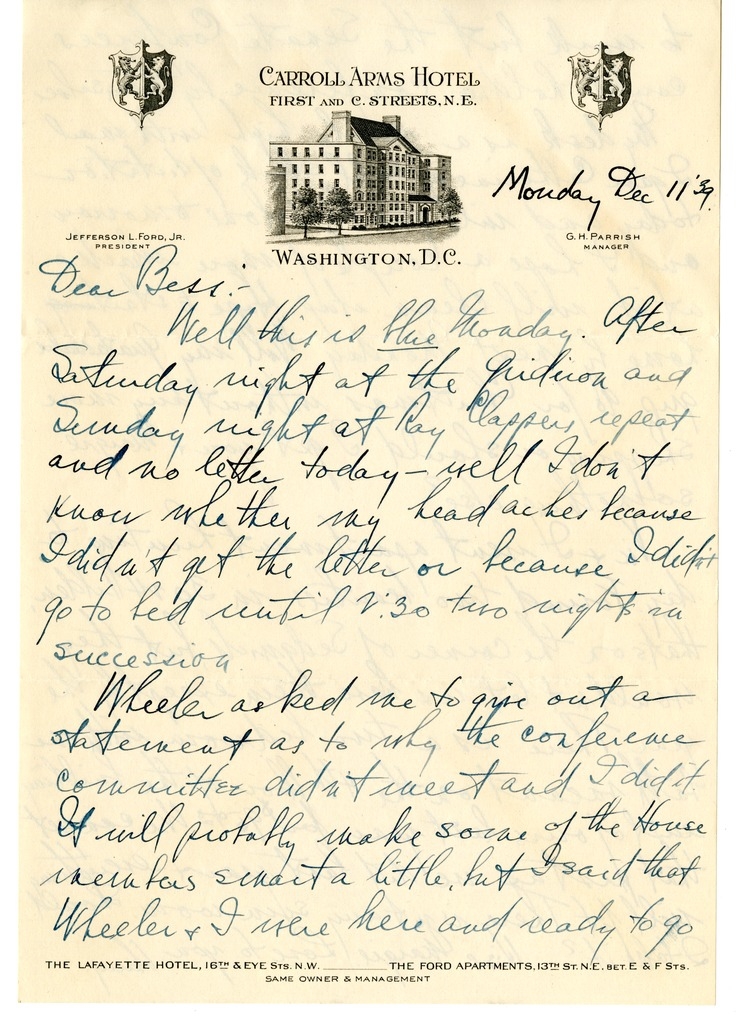 CARROLL ARMS HOTEL
FIRST AND C. STREETS, N.E.
Monday Dec 11 '39.
JEFFERSON L. FORD, JR.
PRESIDENT
G. H. PARRISH
MANAGER
WASHINGTON, D.C.
Dear Bess:-
Well this is blue Monday. After
Saturday night at the Gridiron and
Sunday night at Ray Clappers repeat
and no letter today - well I don't
know whether my head aches because
I didn't get the letter or because I didn't
go to bed until :30 two nights in
succession
Wheeler asked me to give out a
statement as to why the conference
committee didn't meet and I did it.
It will probably make some of the House
members smart a little, but I said that
Wheeler & I were here and ready to go
THE LAFAYETTE HOTEL, 16TH & EYE STS. N.W. THE FORD APARTMENTS, 13TH ST. N.E. BET. E & F STS.
SAME OWNER & MANAGEMENT